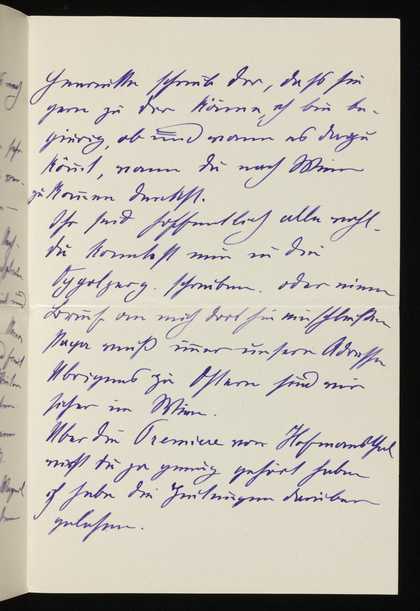 Henriette schrieb dir, daß sie
gern zu dir käme, ich bin be-
gierig, ob und wann es dazu
kömt, wann du nach Wien
zu komen denkst.
Ihr seid hoffentlich alle wohl.
du konntest mir in die
schreiben. oder einen
Brief an mich dort hin einschließen
Papa weiß immer unsere Adresse
Übrigens zu Ostern sind wir
sicher in Wien.
Über die Premiere von Hofmannsthal
wirst du ja genug gehört haben
ich habe die Zeitungen darüber
gelesen.